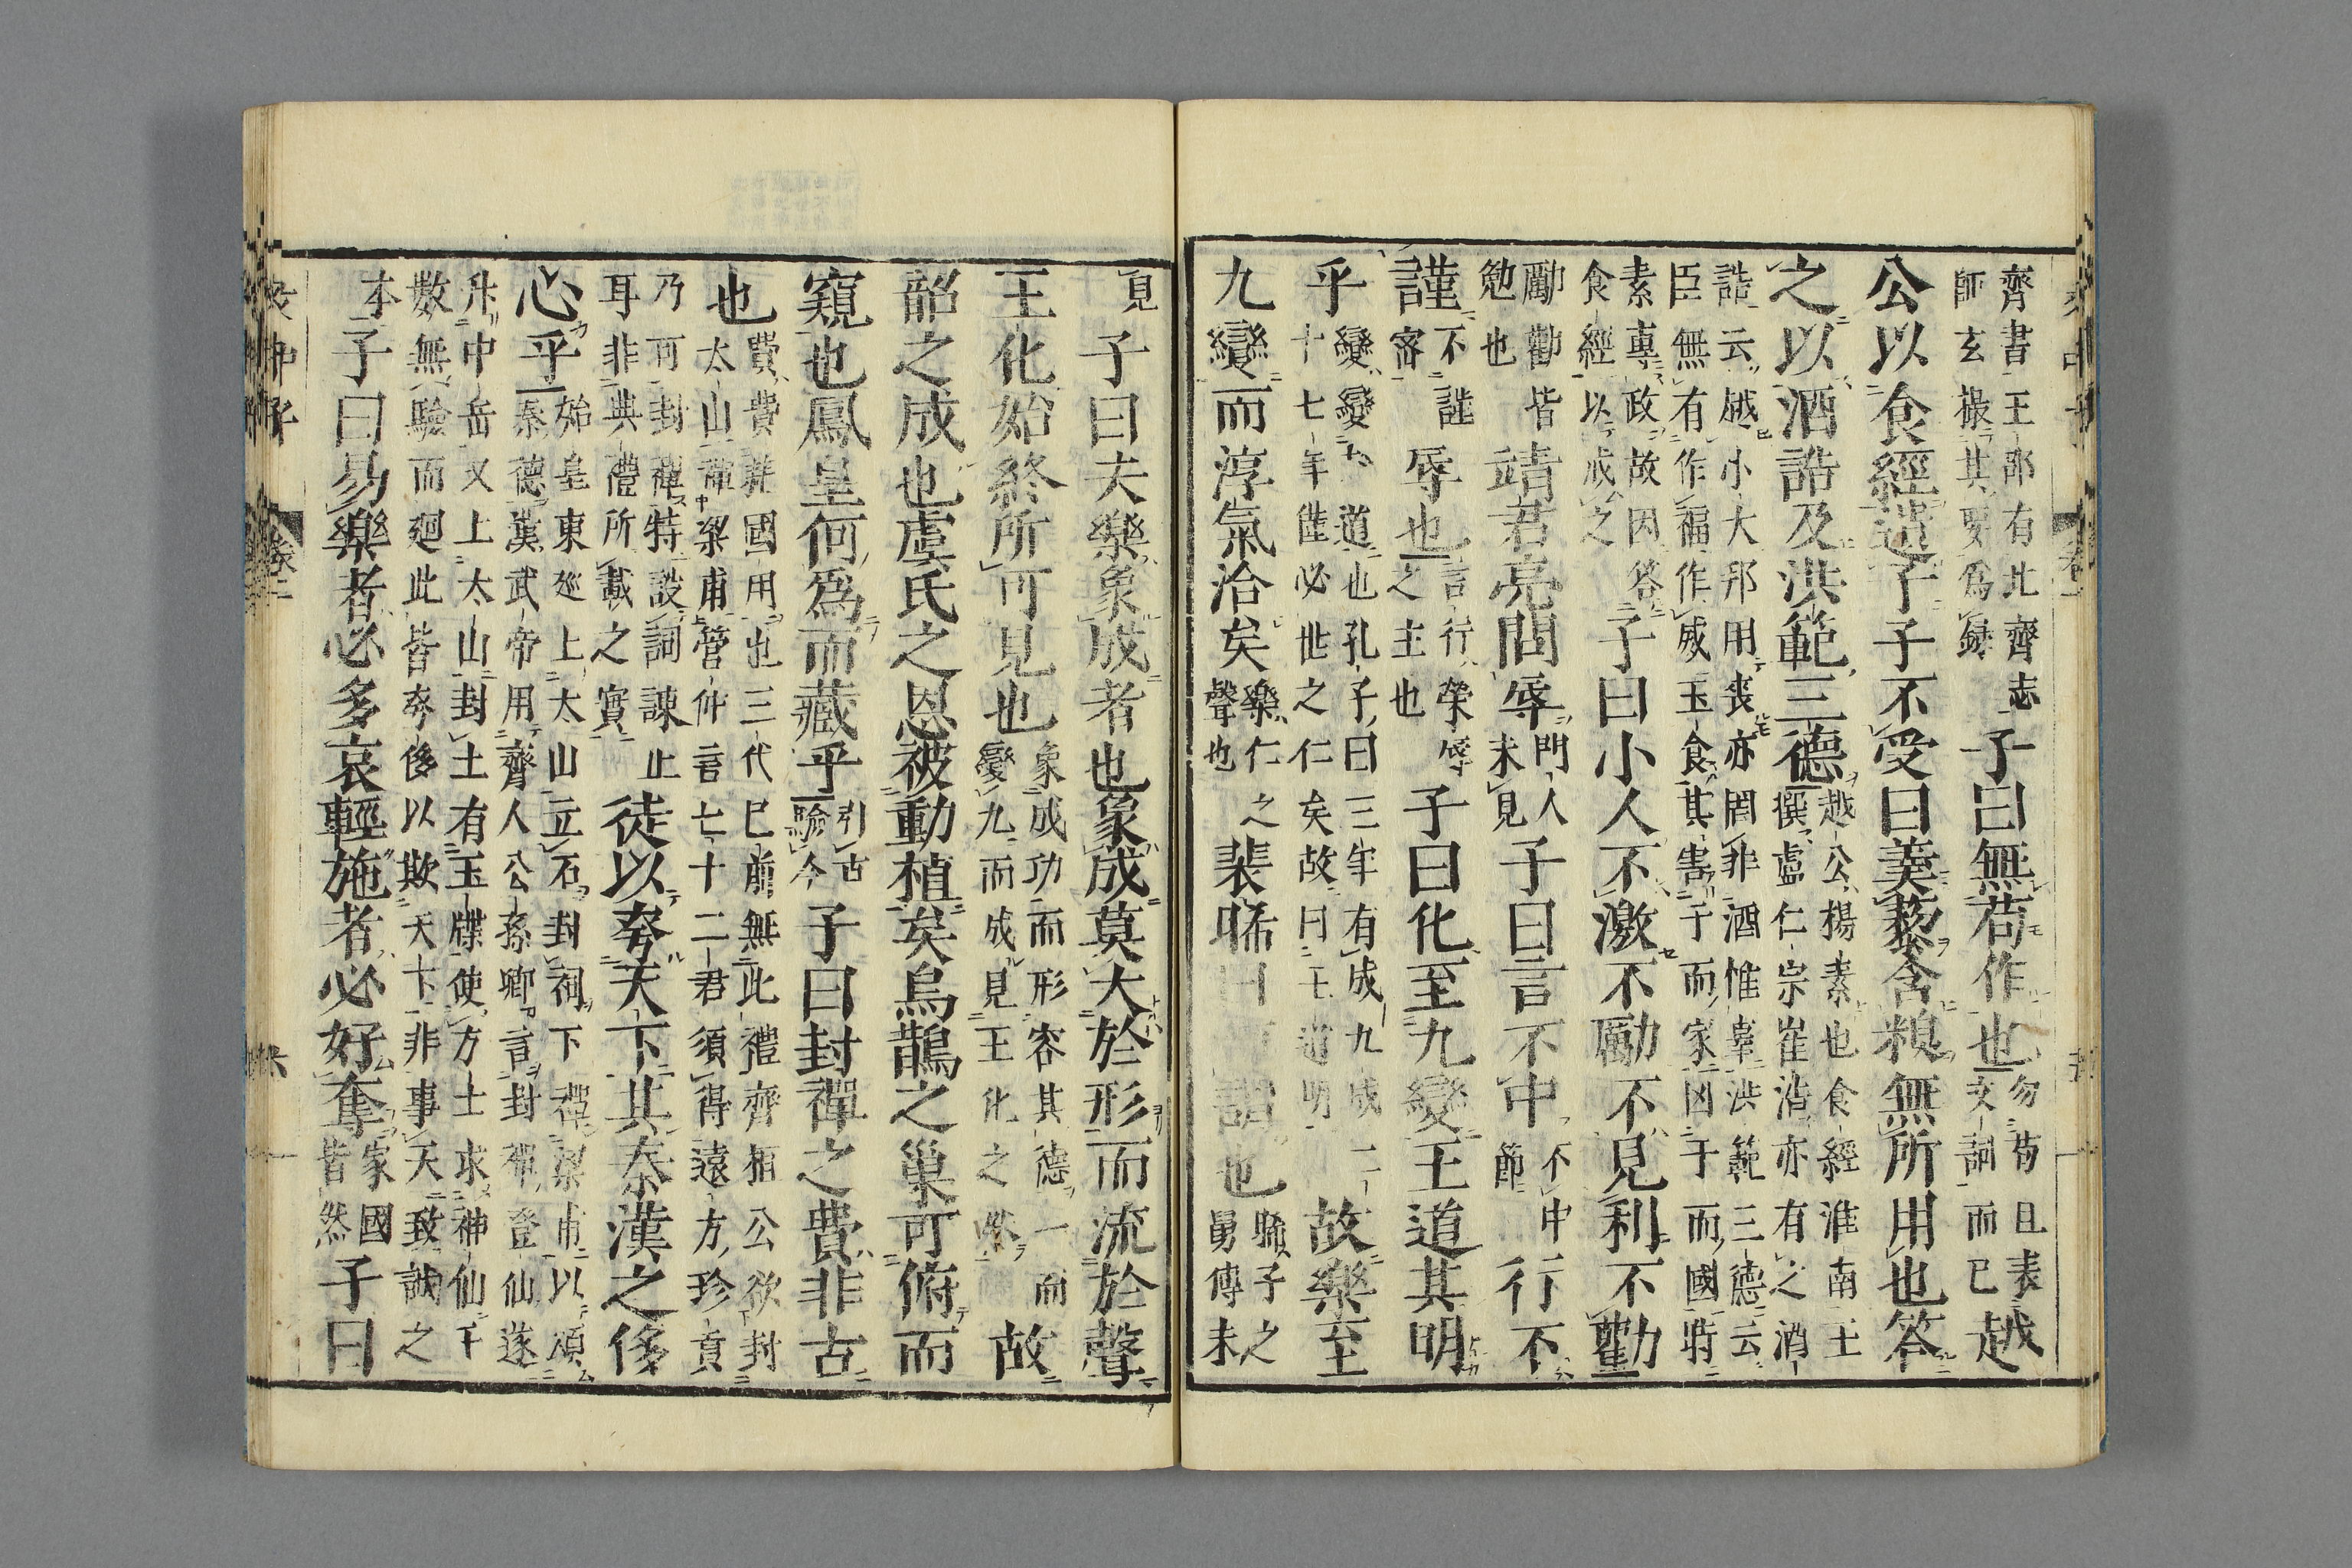 齊書王邵有北齊志師玄其要爲録子曰無苟作也勿苟且表文詞而已越
公以食經遺子子不受曰羹藜含糗無所用也答
之以酒誥及洪範三德越公楊素也食經淮南王撰盧仁宗崔浩亦有之酒
誥云越小大邦用喪亦罔非酒惟辜洪範三德云臣無有作福作威玉食其害于而家凶于而國時
素專政故因答食經以戒之子曰小人不激不勵不見利不勸
勵勸皆勉也靖君亮問辱門人未見子曰言不中不中節行不
謹不謹審辱也言行榮辱之主也子曰化至九變王道其明
乎變變道也孔子曰三年有成九成二十七年必世之仁矣故曰王道明故樂至
九變而淳氣洽矣樂仁之聲也裴晞曰何謂也騶子之舅傳未
見子曰夫樂象成者也象成莫大於形而流於聲
王化始終所可見也象成功而形容其德一而變九而成見王化之終故
韶之成也虞氏之恩被動植矣烏鵲之巢可俯而
窺也鳳皇何爲而藏乎引古驗今子曰封禪之費非古
也費費耗國用也三代已前無此禮齊桓公欲封太山禪梁甫管仲言七十二君須得遠方珍貢
乃可封禪特設詞諫止耳非典禮所載之實徒以夸天下其秦漢之侈
心乎始皇東巡上太山立石封祠下禪梁甫以頌秦德漢武帝用齊人公孫卿言封禪登仙遂
升中岳又上太山封土有玉牒使方士求神仙千數無驗而廻此皆夸侈以欺天下非事天致誠之
本子曰易樂者必多哀輕施者必好奪家國皆然子曰
文中子 卷二 六